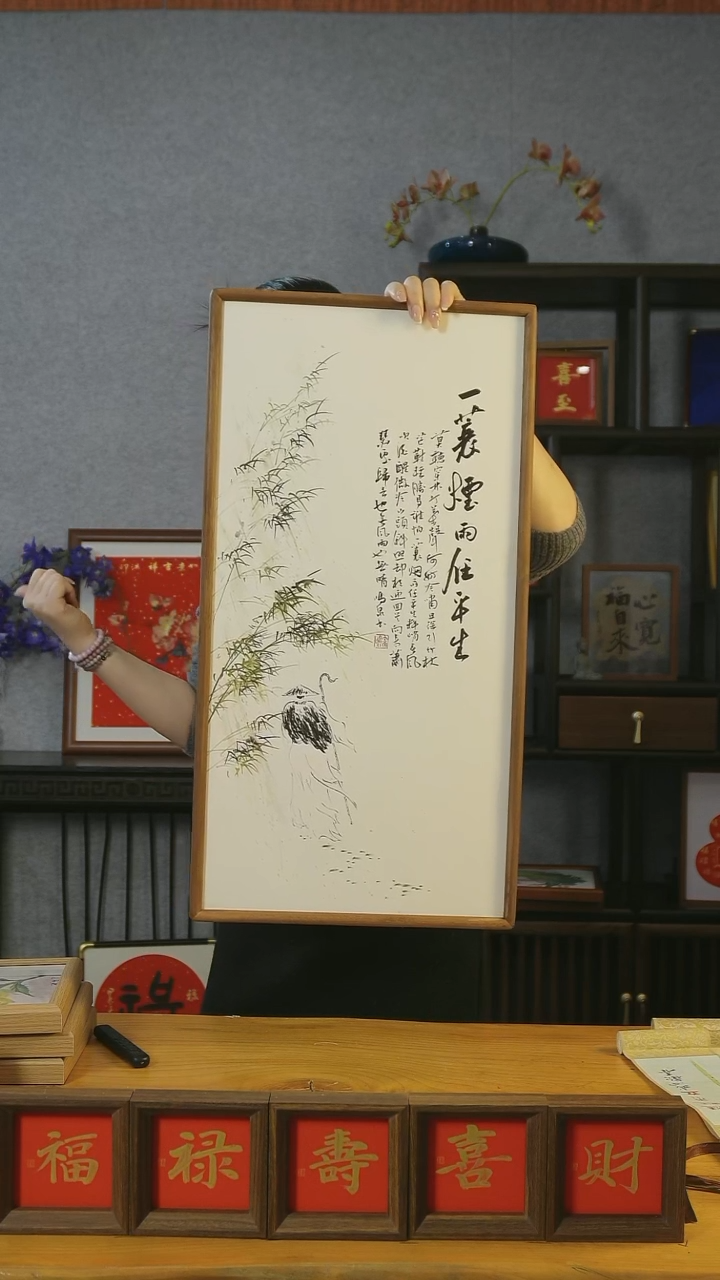 一蓑煙雨任平生
莫聽穿林打葉聲何妨吟嘯且徐行竹杖
芒鞋輕勝馬誰怕一蓑烟雨任平生料峭春風
吹酒醒微冷山頭斜照却相迎回首向來蕭
瑟處歸去也無風雨也無晴
喜至
心寬
福自來
福
禄
壽
喜
財